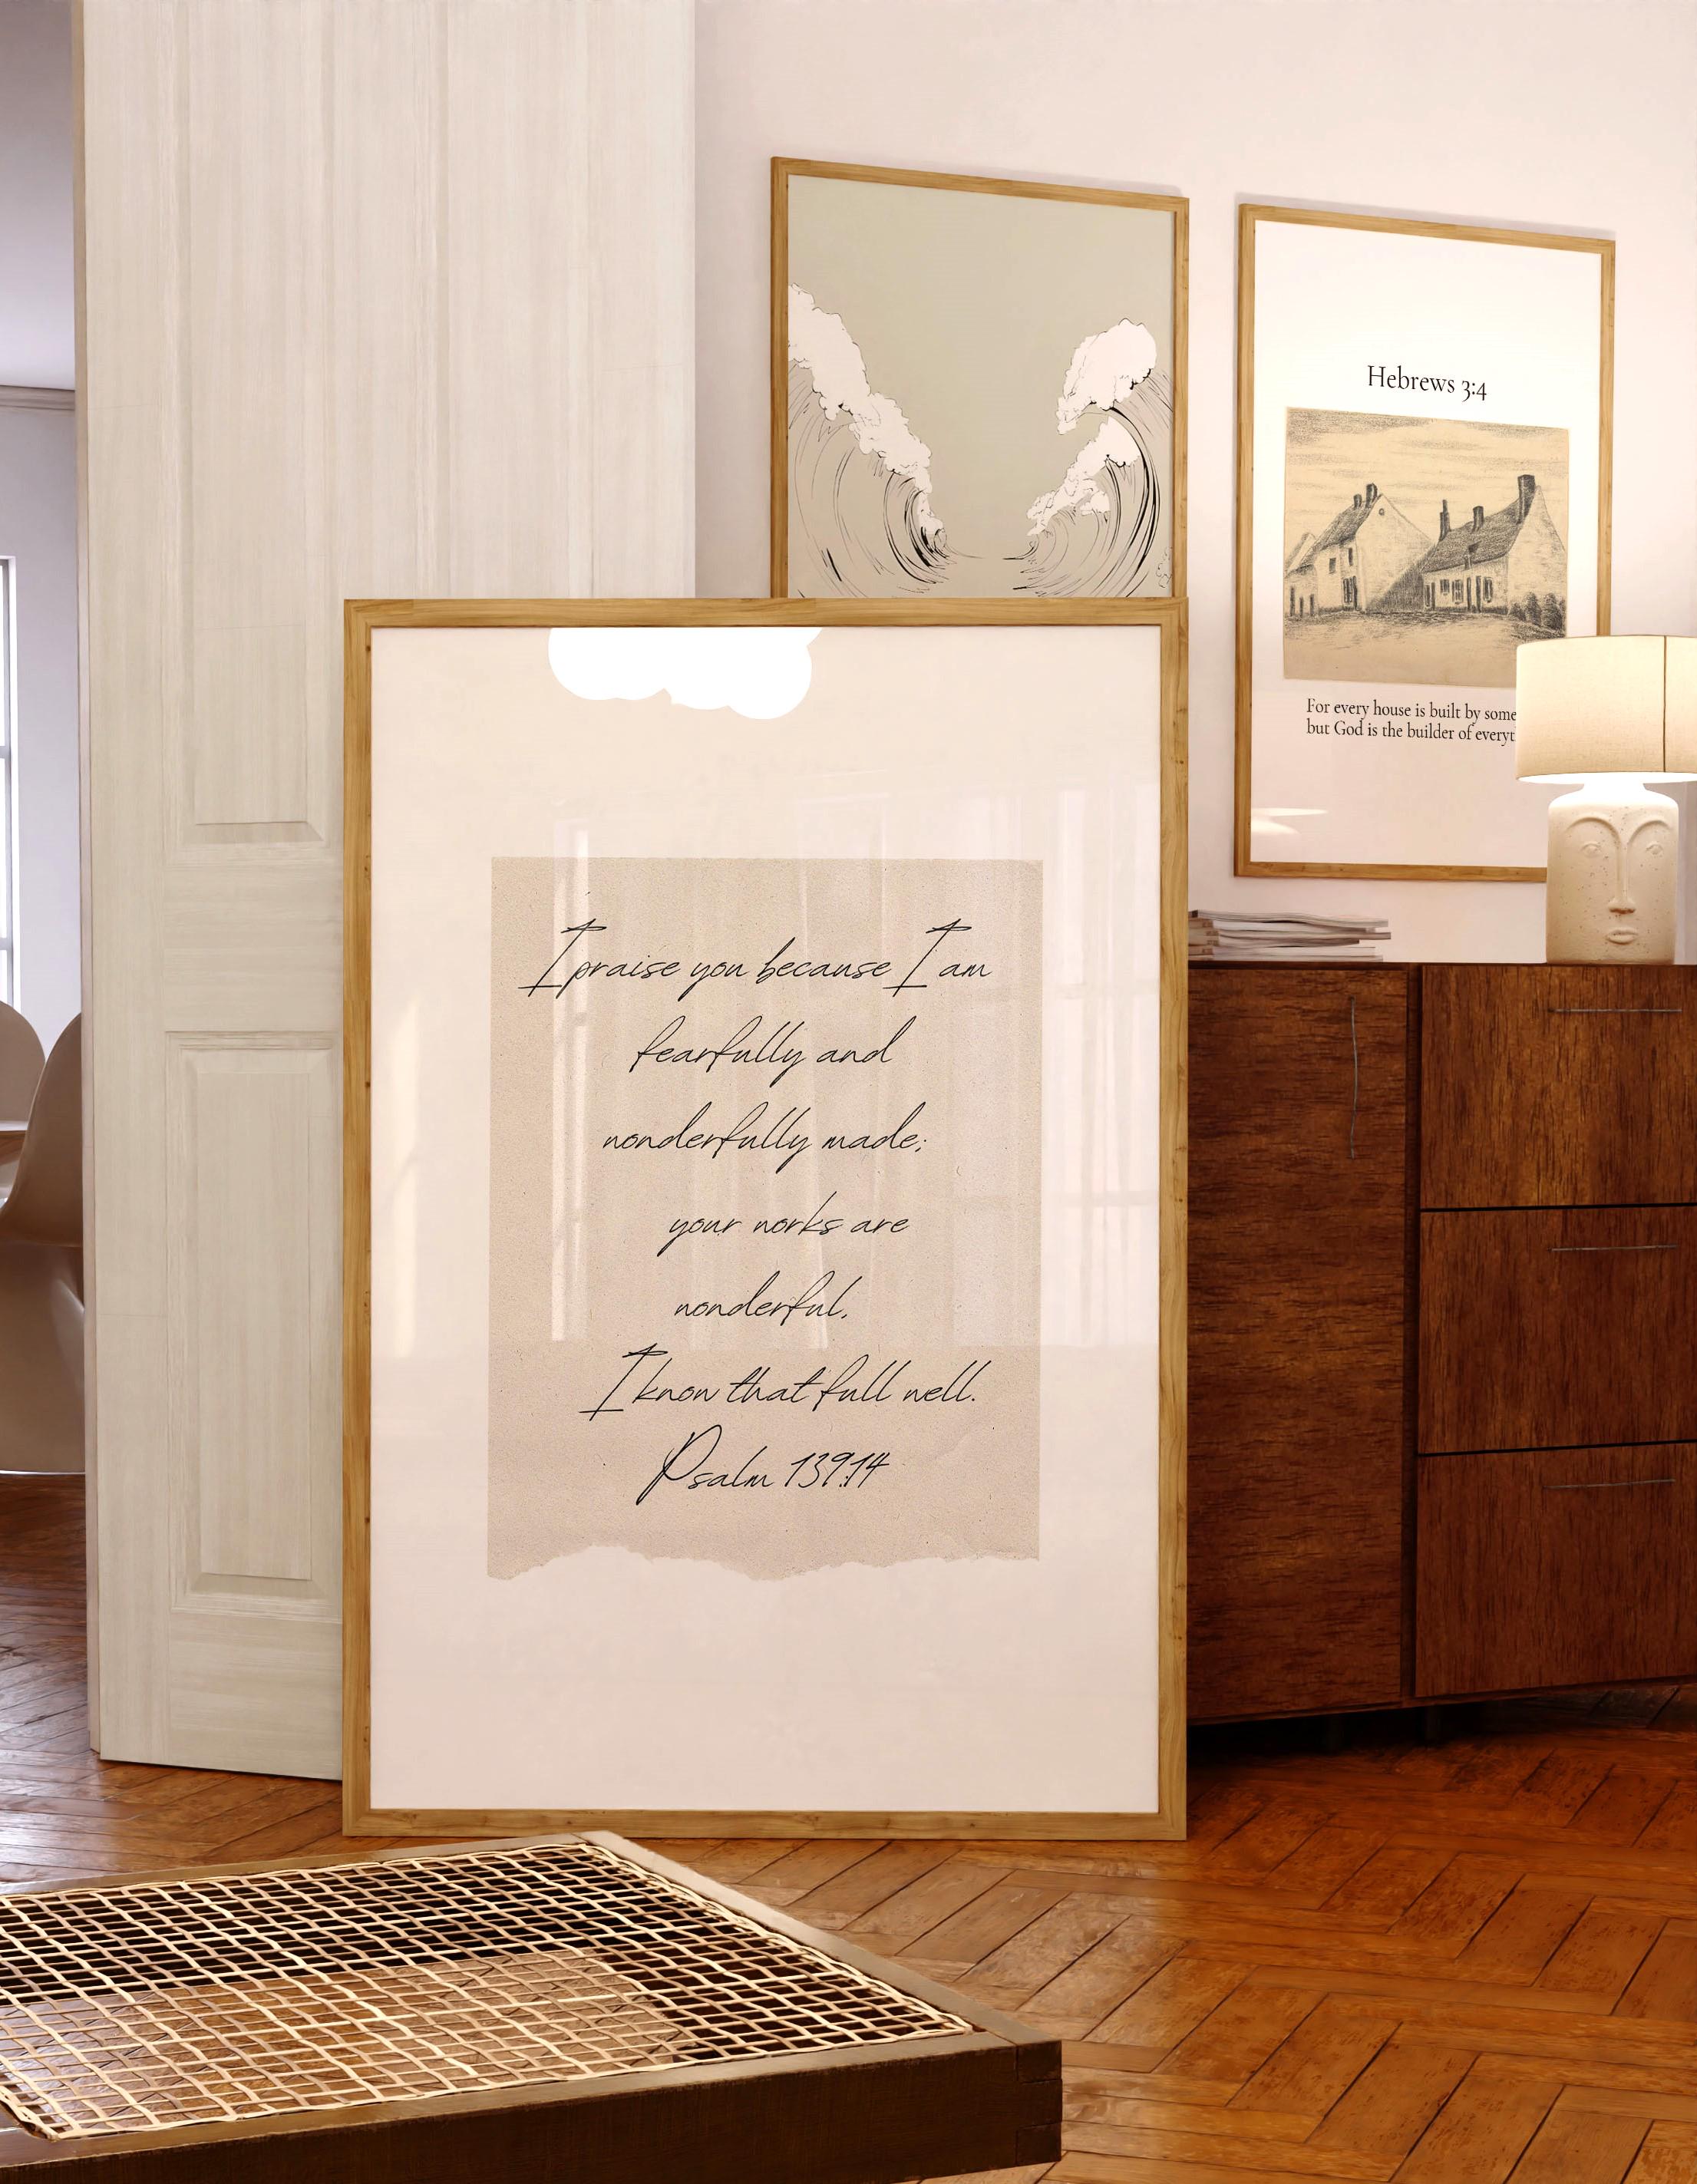 I praise you because I am
fearfully and
wonderfully made;
your works are
wonderful,
I know that full well.
Psalm 139:14
Hebrews 3:4
For every house is built by some
but God is the builder of everyt